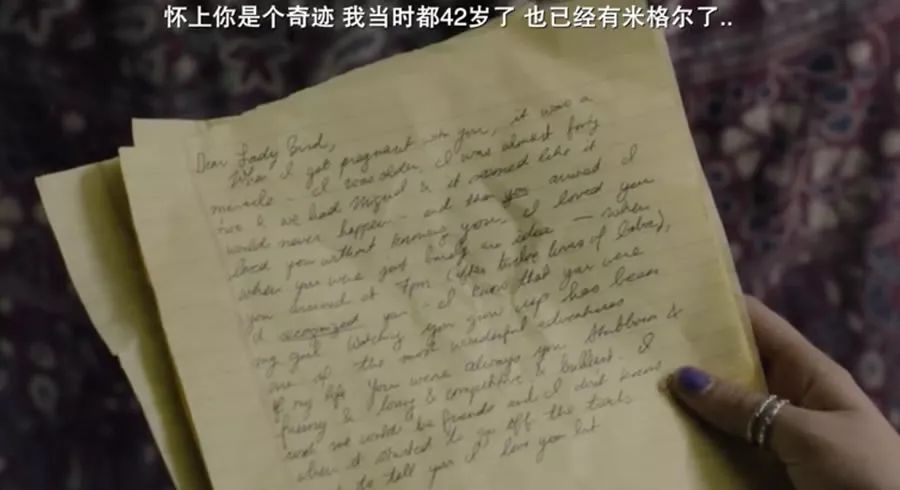 怀上你是个奇迹 我当时都42岁了 也已经有米格尔了..
Dear Lady Bird,
When I got pregnant with you, it was a
miracle – I was older, I was almost forty
two & we had Miguel & it seemed like it
would never happen – and then you arrived I
loved you without knowing you. I loved you
when you were just barely an idea – when
you arrived at 7pm (after twelve hours of labor),
I'd recognized you – I knew that you were
my girl. Watching you grow up has been
one of the most wonderful adventures
of my life. You were always you. Stubborn &
funny & loving & competitive & brilliant. I
wish we would be friends and I don't know
when it started to go off the tracks
to tell you I love you but